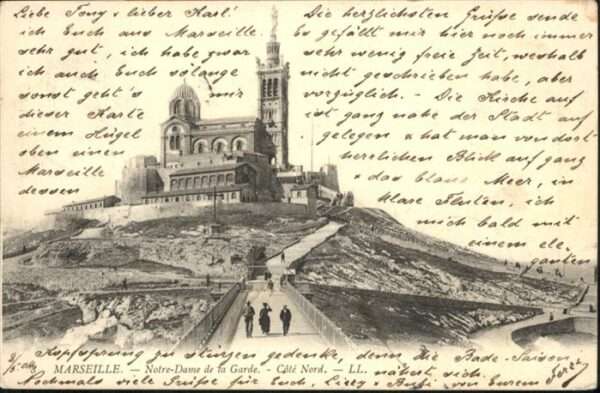 Liebe Tony & lieber Karl! Die herzlichsten Grüße sende
ich Euch aus Marseille Es gefällt mir hier noch immer
sehr gut, ich habe zwar sehr wenig freie Zeit, weshalb
ich auch Euch solange nicht geschrieben habe, aber
sonst geht's mir vorzüglich. - Die Kirche auf
dieser Karte ist ganz nahe der Stadt auf
einem Hügel gelegen & hat man von dort
oben einen herrlichen Blick auf ganz
Marseille & das blaue Meer, in
dessen klare Fluten, ich
mich bald mit
einem ele-
ganten
Kopfsprung zu stürzen gedenke, denn die Bade-Saison
nähert sich.
MARSEILLE. — Notre-Dame de la Garde. - Côté Nord. — LL.
Nochmals viele Grüße für Euch, & von Eurem